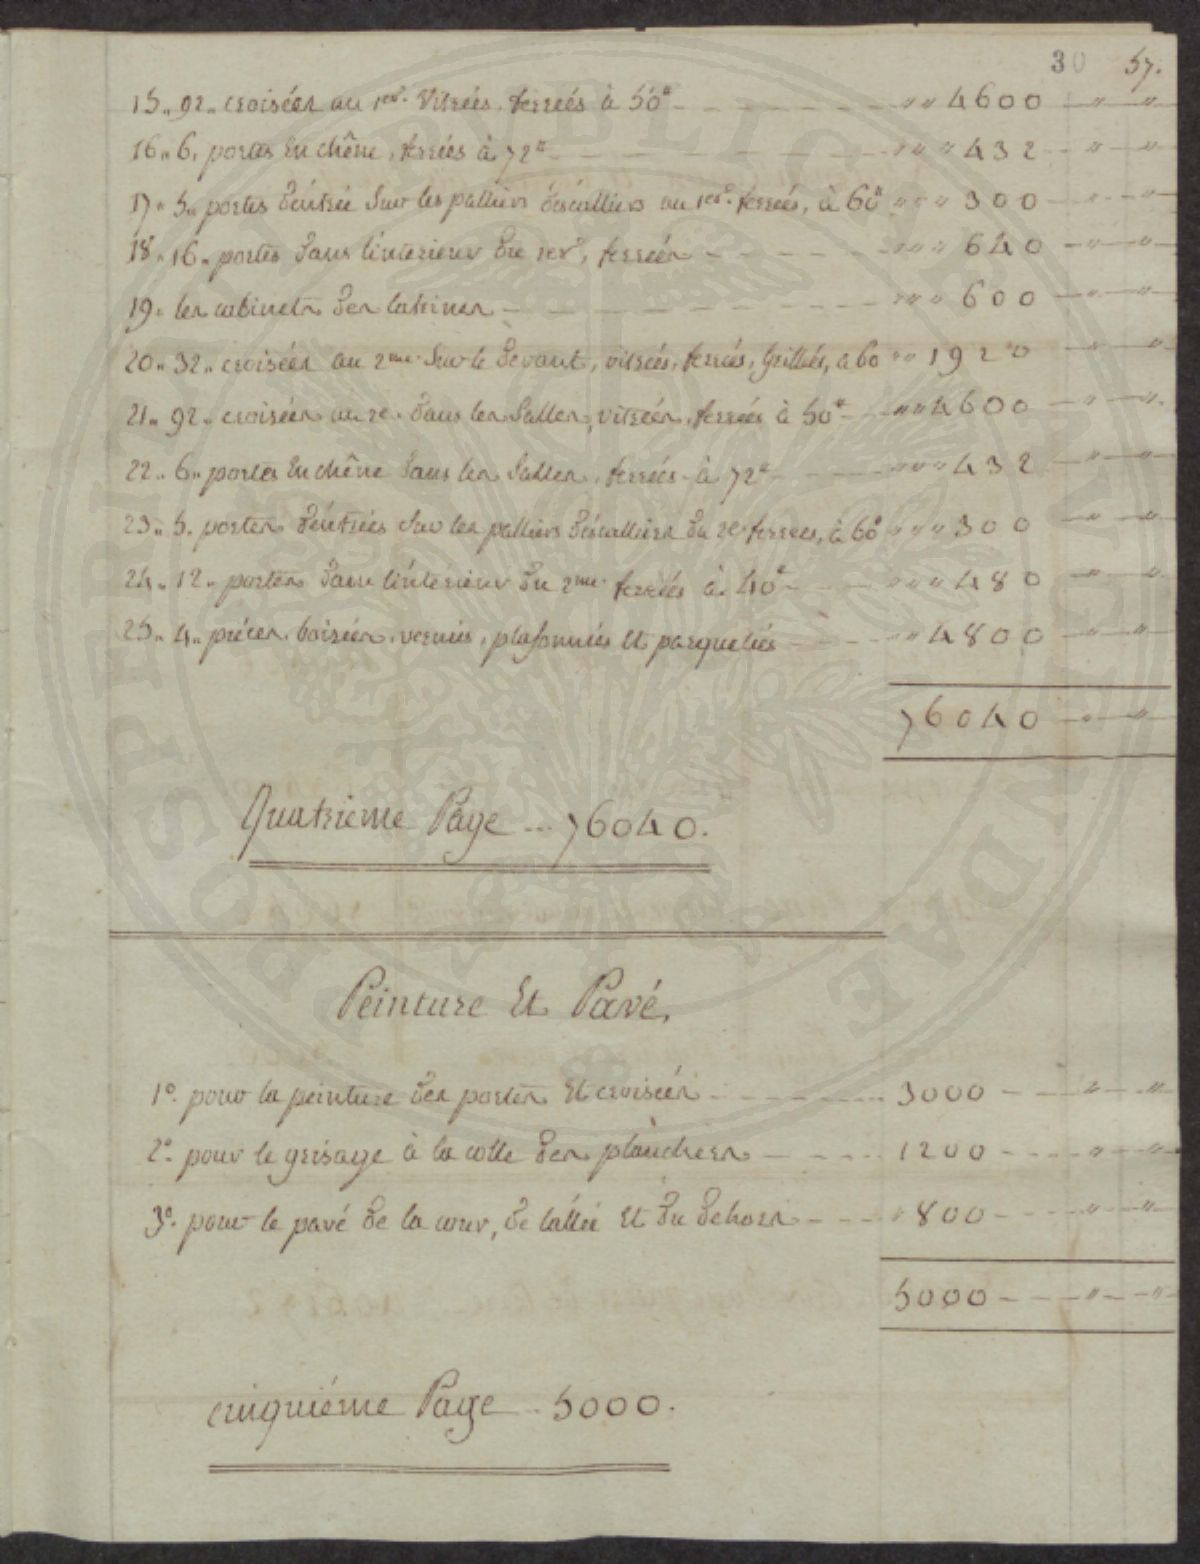 30 57.
15.. 92.. croisées au 1er. vitrées, ferreés à 50# " " 4600 " "
16.. 6. portes En chêne, ferreés à 72# " " " 432 " "
17.. 5.. portes d'éntrée sur les palliers d'éscalliers au 1er. ferreés, à 60# " " " 300 " "
18.. 16.. portes dans l'interieur du 1er, ferreés " " " 640 " "
19.. les cabinets des latrines " " " 600 " "
20.. 32.. croisées au 2me. sur le devant, vitreés, ferreés, Grilleés, a 60 " " 1920 " "
21.. 92.. croisées au 2e. dans les salles, vitreés, ferreés à 50# " " 4600 " "
22.. 6.. portes En chêne dans les salles, ferreés à 72# " " " 432 " "
23.. 5. portes d'éntreés sur les palliers d'éscalliers du 2e ferrees, à 60# " " " 300 " "
24.. 12.. portes dans l'intérieur du 2me. ferreés à 40# " " " 480 " "
25.. 4.. piéces, boiseés, verniés, plafonnées Et parqueteés " " 4800 " "
76040 " "
Quatrieme Page ... 76040.
Peinture Et Pavé,
1º. pour la peinture des portes Et croisées 3000 " "
2º. pour le grisage à la colle des planchers 1200 " "
3º. pour le pavé de la cour, de l'allée Et du dehors " 800 " "
5000 " "
cinquiéme Page .. 5000.